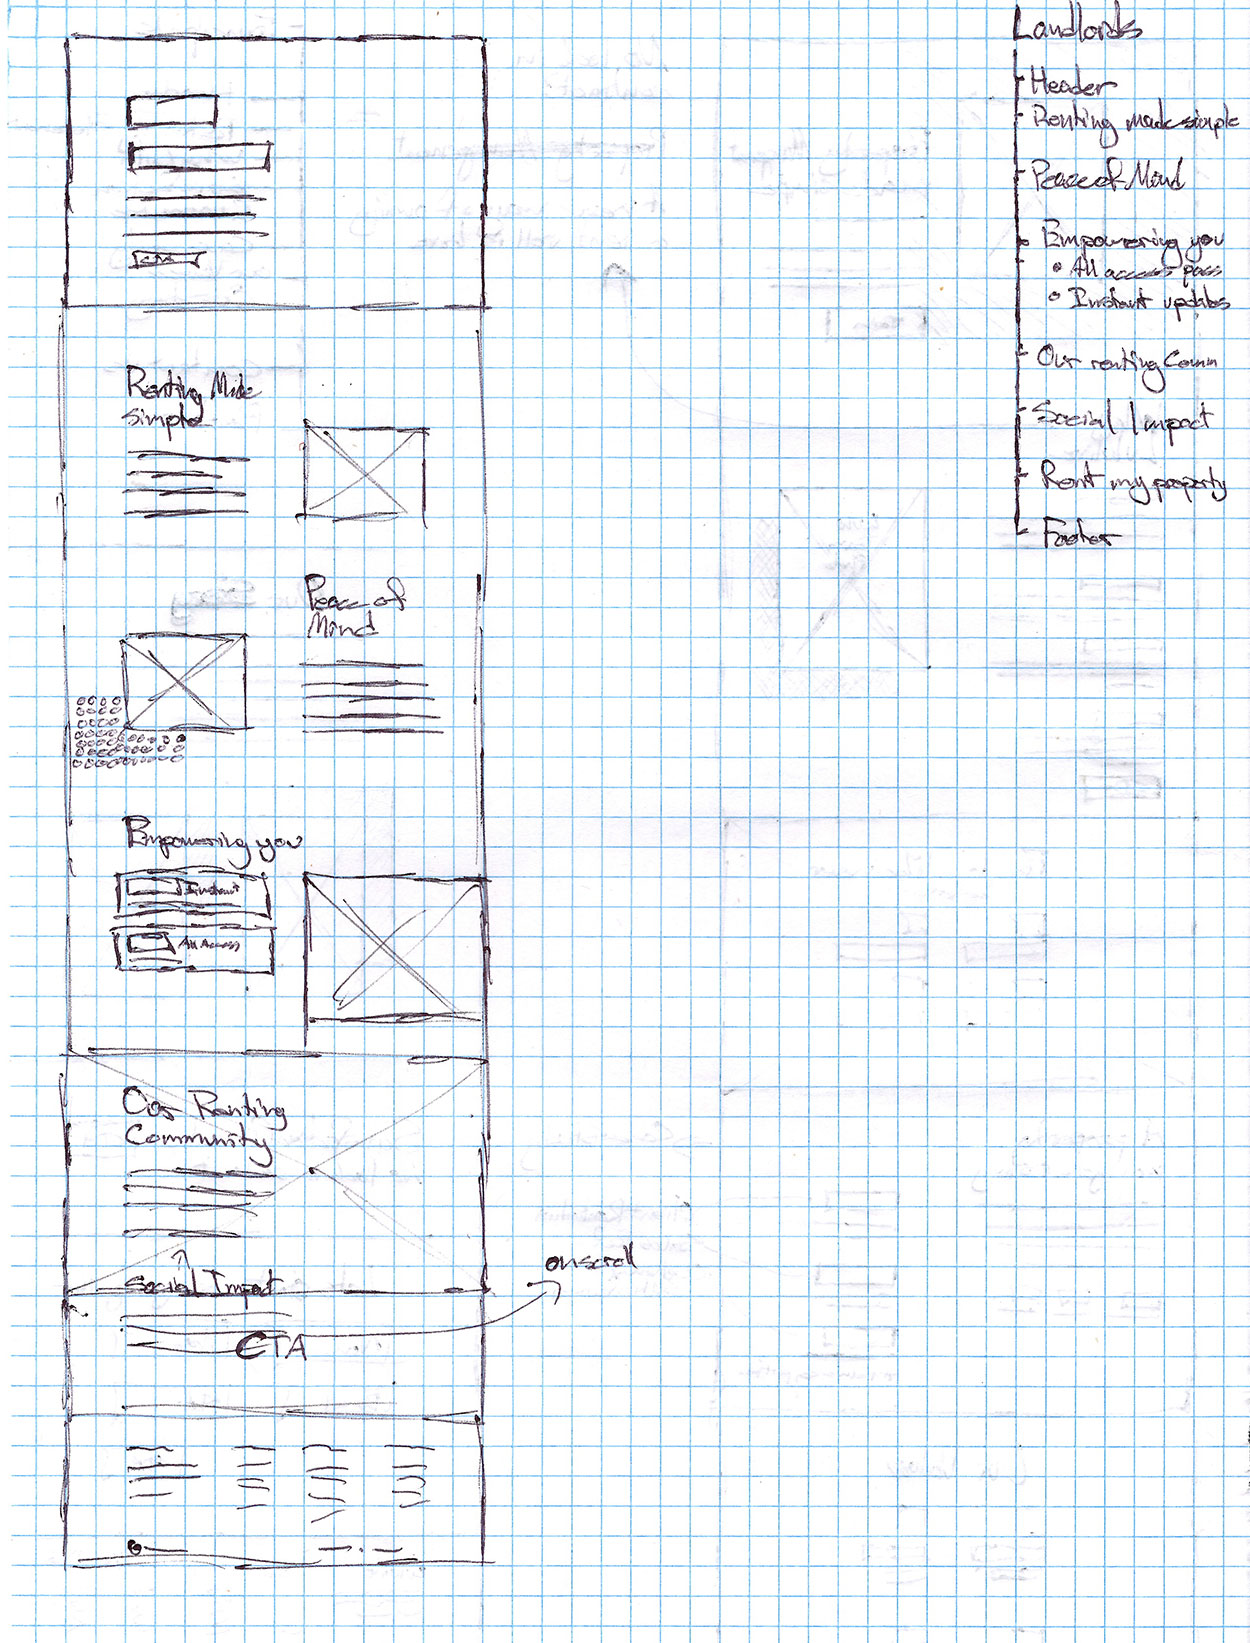 Renting Made
simple
Peace of
Mind
Empowering you
Instant
All Access
Our Renting
Community
Social Impact
CTA
on scroll
Landlords
Header
Renting made simple
Peace of Mind
Empowering you
All access pass
Instant updates
Our renting Comm
Social Impact
Rent my property
Footer